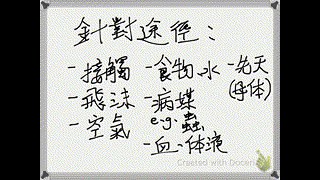 針對途徑：
-接觸 -食物、水 -先天
(母体)
-飛沫 -病媒
e.g. 蟲
-空氣
-血、体液
Created with Doceri